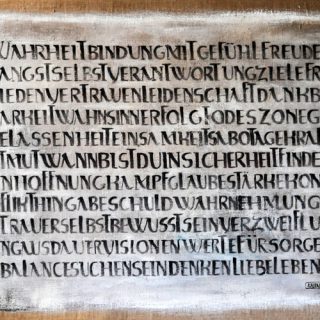 WAHRHEITBINDUNGMITGEFÜHLFREUDE
ANGSTSELBSTVERANTWORTUNGZIELEFR
IEDENVERTRAUENLEIDENSCHAFTDANKB
ARKEITWAHNSINNERFOLGTODESZONEG
ELASSENHEITEINSAMKEITSABOTAGEKRA
FTMUTWANNBISTDUINSICHERHEITFINDE
NHOFFNUNGKAMPFGLAUBESTÄRKEKON
FLIKTHINGABESCHULDWAHRNEHMUNG
TRAUERSELBSTBEWUSSTSEINVERZWEIFLU
NGAUSDAUERVISIONENWERTEFÜRSORGE
BALANCESUCHENSEINDENKENLIEBELEBEN